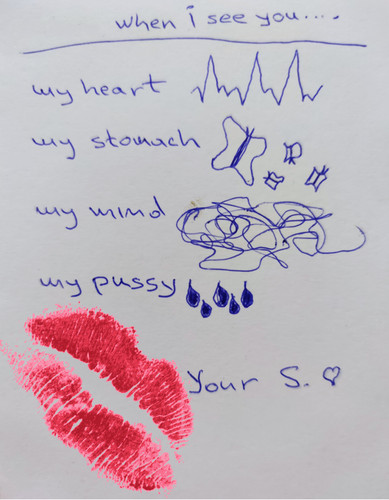 when i see you....
my heart
my stomach
my mind
my pussy
Your S.